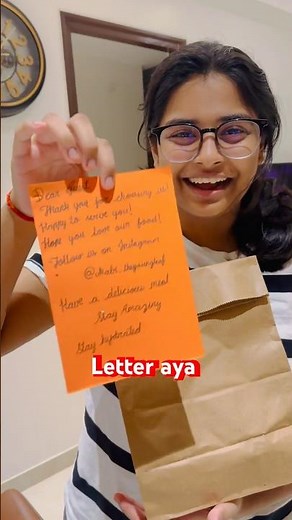 Dear
Thank you for choosing us!
Happy to serve you!
Hope you love our food!
Follow us on Instagram
Have a delicious meal
Stay Amazing
Stay hydrated
Letter aya